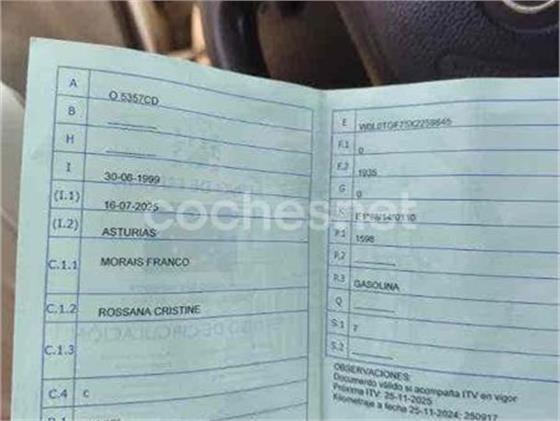 A
O 5357CD
B
H
I
30-06-1999
(I.1)
16-07-2025
(I.2)
ASTURIAS
C.1.1
MORAIS FRANCO
C.1.2
ROSSANA CRISTINE
C.1.3
C.4
C
E
F.1
0
F.2
1935
G
0
K
P.1
1598
P.2
P.3
GASOLINA
Q
S.1
7
S.2
OBSERVACIONES:
Documento válido si acompaña ITV en vigor
Próxima ITV: 25-11-2025
Kilometraje a fecha 25-11-2024: 250917
coches.net